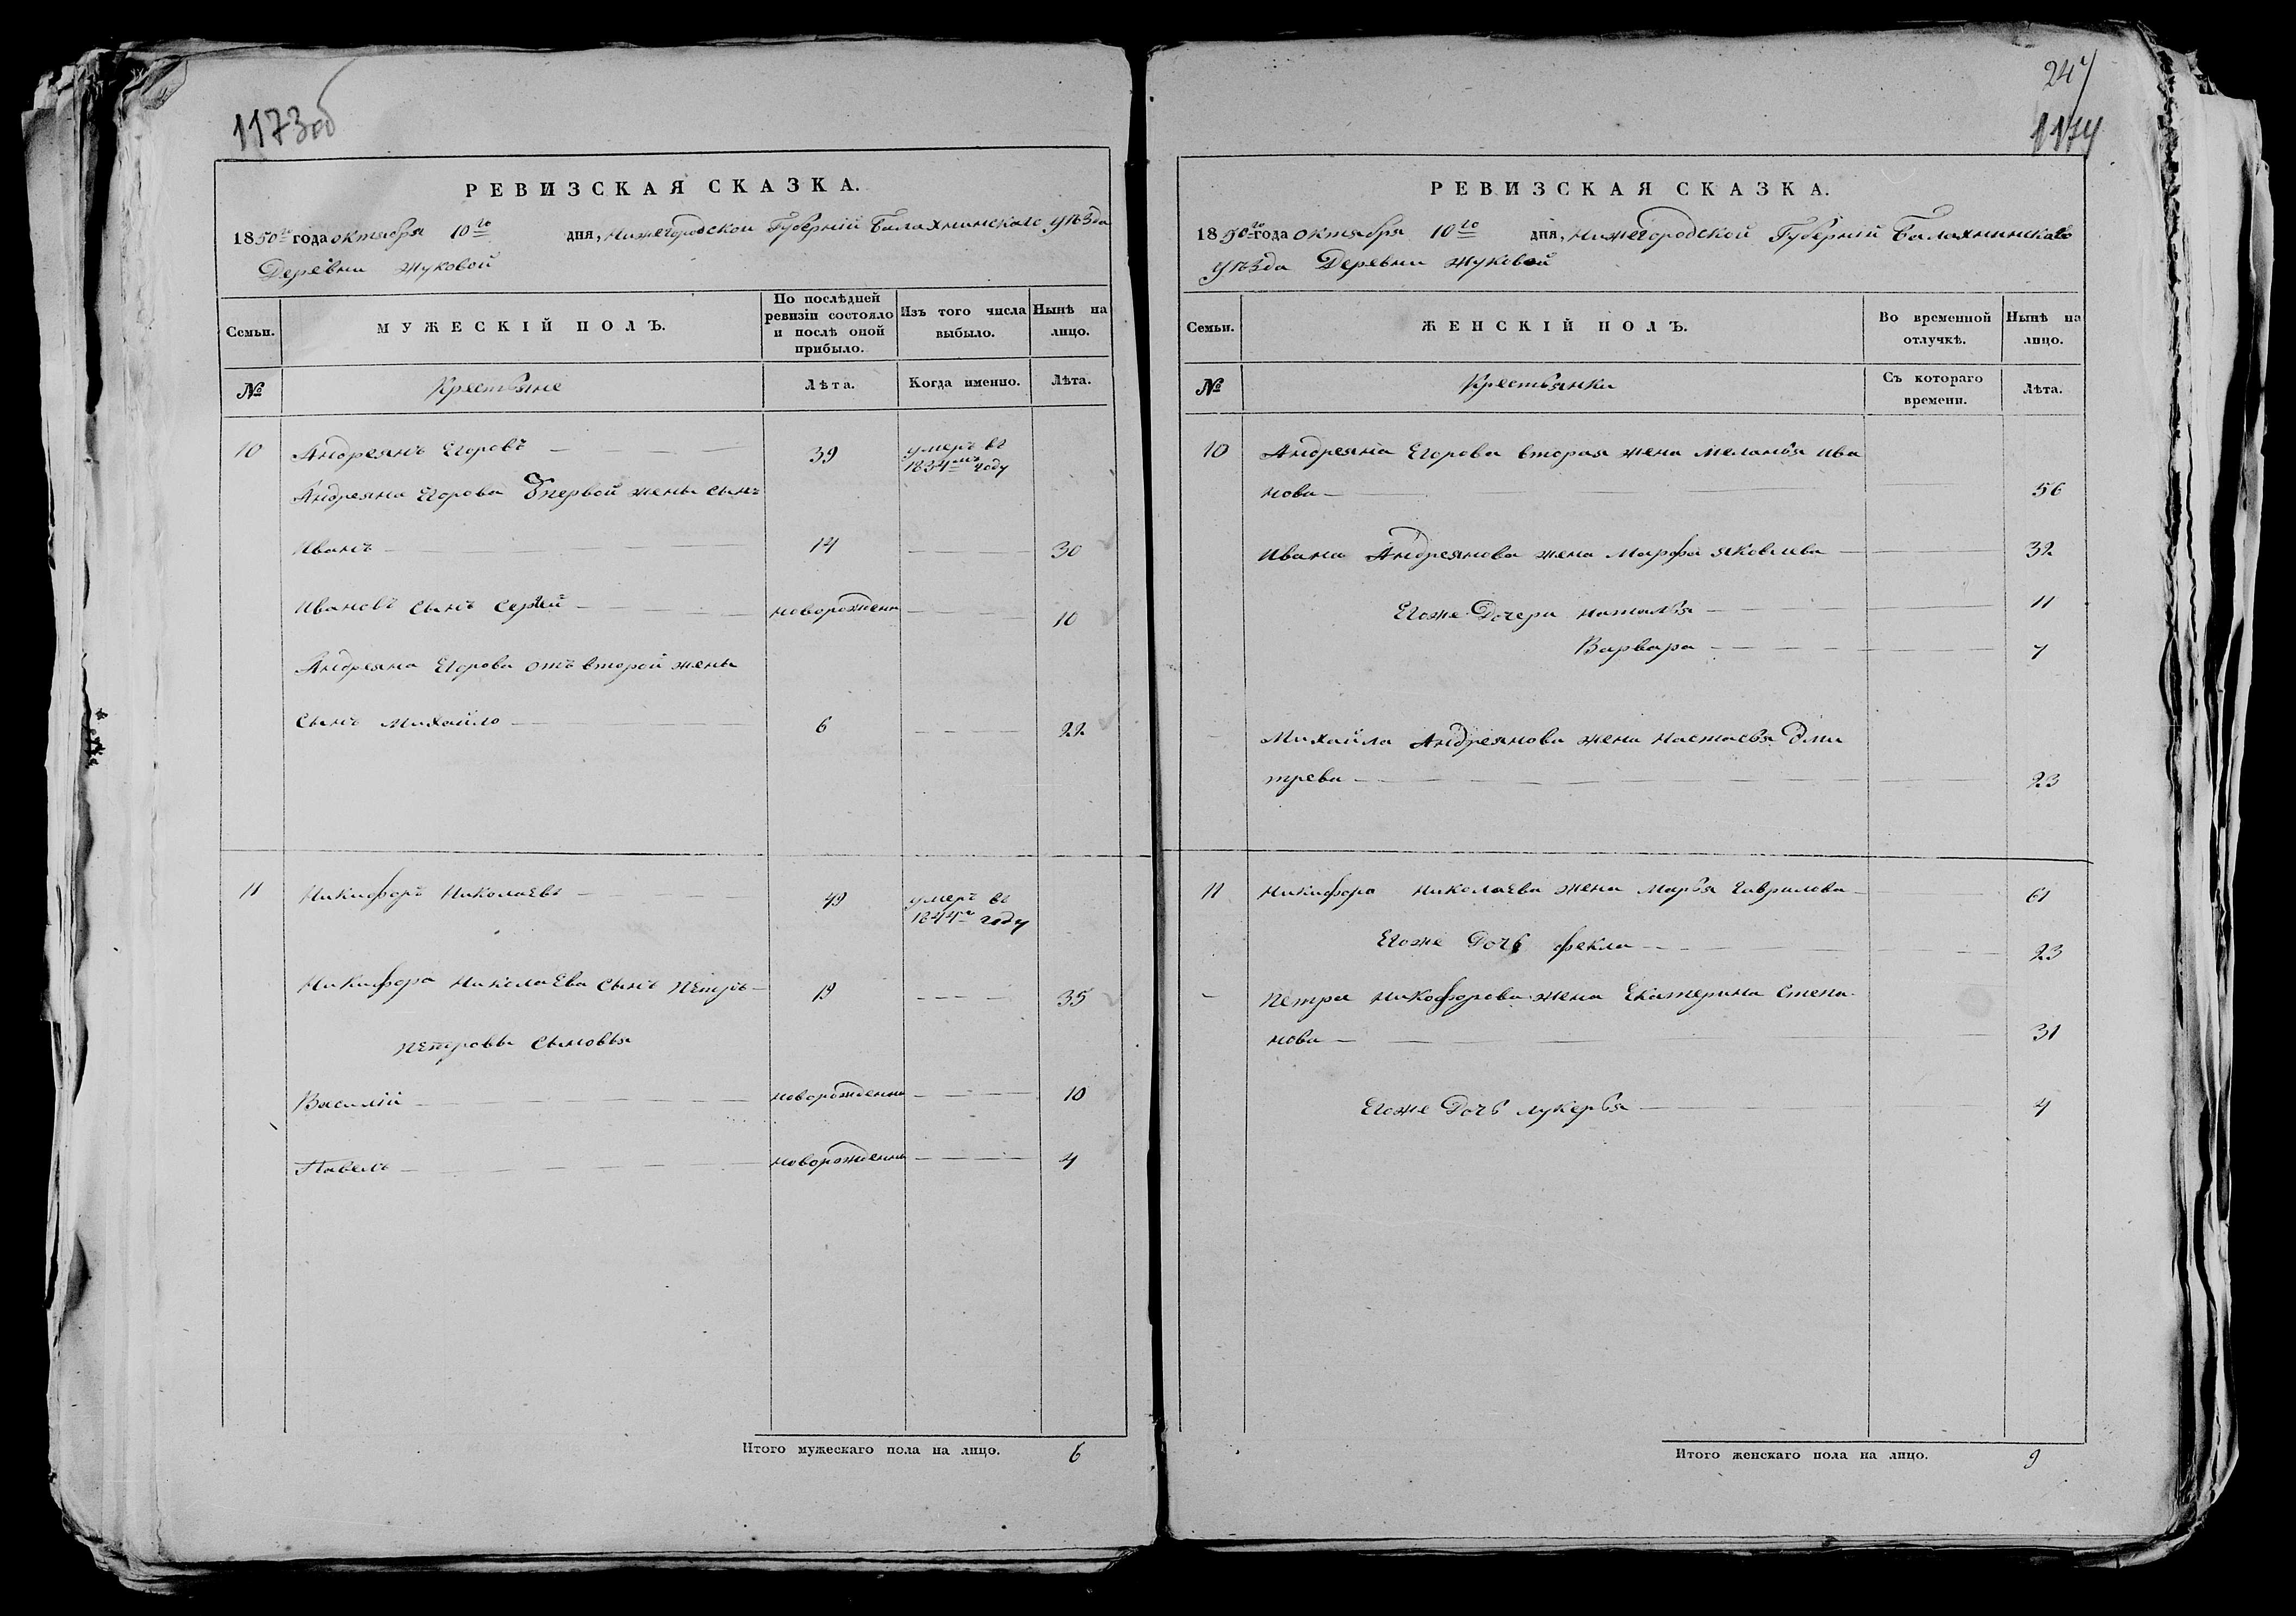 1173об
РЕВИЗСКАЯ СКАЗКА.
1850го года октября 10го дня, Нижегородской Губерніи Балахнинскаго уѣзда
Деревни Жуковой
Семьи. МУЖЕСКІЙ ПОЛЪ. По послѣдней ревизіи состояло и послѣ оной прибыло. Изъ того числа выбыло. Нынѣ на лицо.
№ Крестьяне Лѣта. Когда именно. Лѣта.
10 Андреянъ Егоровъ 39 умеръ въ 1834мъ году
Андреяна Егорова От первой жены сынъ
Иванъ 14 30
Ивановъ сынъ Сергей новорожденн 10
Андреяна Егорова отъ второй жены
сынъ Михайло 6 22
11 Никифоръ Николаевъ 49 умеръ въ 1844м году
Никифора Николаева сынъ Петръ 19 35
Петровы сыновья
Василій новорожденны 10
Павелъ новорожденны 4
Итого мужескаго пола на лицо. 6
247
1174
РЕВИЗСКАЯ СКАЗКА.
1850го года октября 10го дня, Нижегородской Губерніи Балахнинскаго
уѣзда Деревни Жуковой
Семьи. ЖЕНСКІЙ ПОЛЪ. Во временной отлучкѣ. Нынѣ на лицо.
№ Крестьянки Съ котораго времени. Лѣта.
10 Андреяна Егорова вторая жена Меланья Ива
нова 56
Ивана Андреянова жена Марфа Яковлева 32
Егоже Дочери Наталья 11
Варвара 7
Михайла Андреянова жена Настасья Дми
трева 23
11 Никифора Николаева жена Марья Гаврилова 61
Егоже Дочь Фекла 23
Петра Никофорова жена Екатерина Степа
нова 31
Егоже Дочь Лукерья 4
Итого женскаго пола на лицо. 9